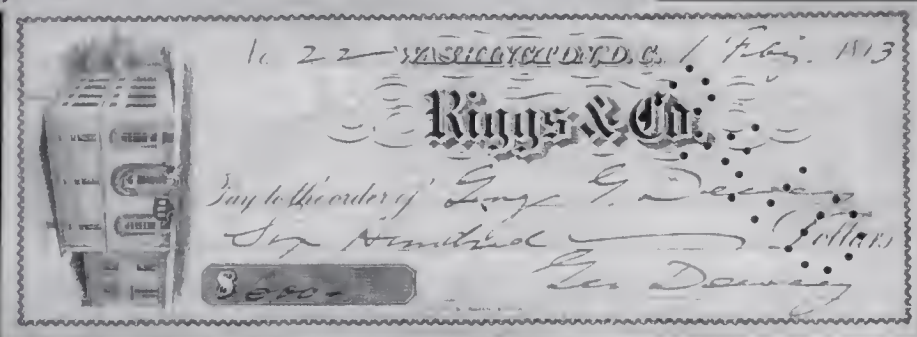 No 22 WASHINGTON, D.C. 1 Feb'y.
Riggs & Co.
Pay to the order of George G. Dewey
Six Hundred Dollars
$600-
Geo Dewey